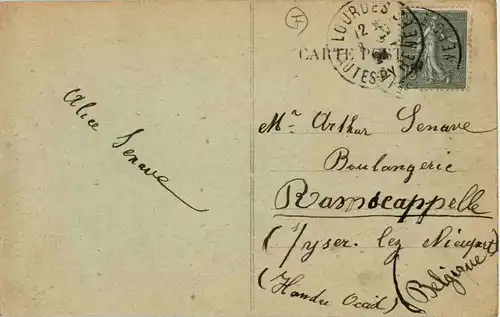 LOURDES
12
HAUTES-PYRENEES
CARTE POSTALE
Alice Senave
Mr Arthur Senave
Boulangerie
Ramscappelle
(s/yser lez Nieuport)
(Belgique)